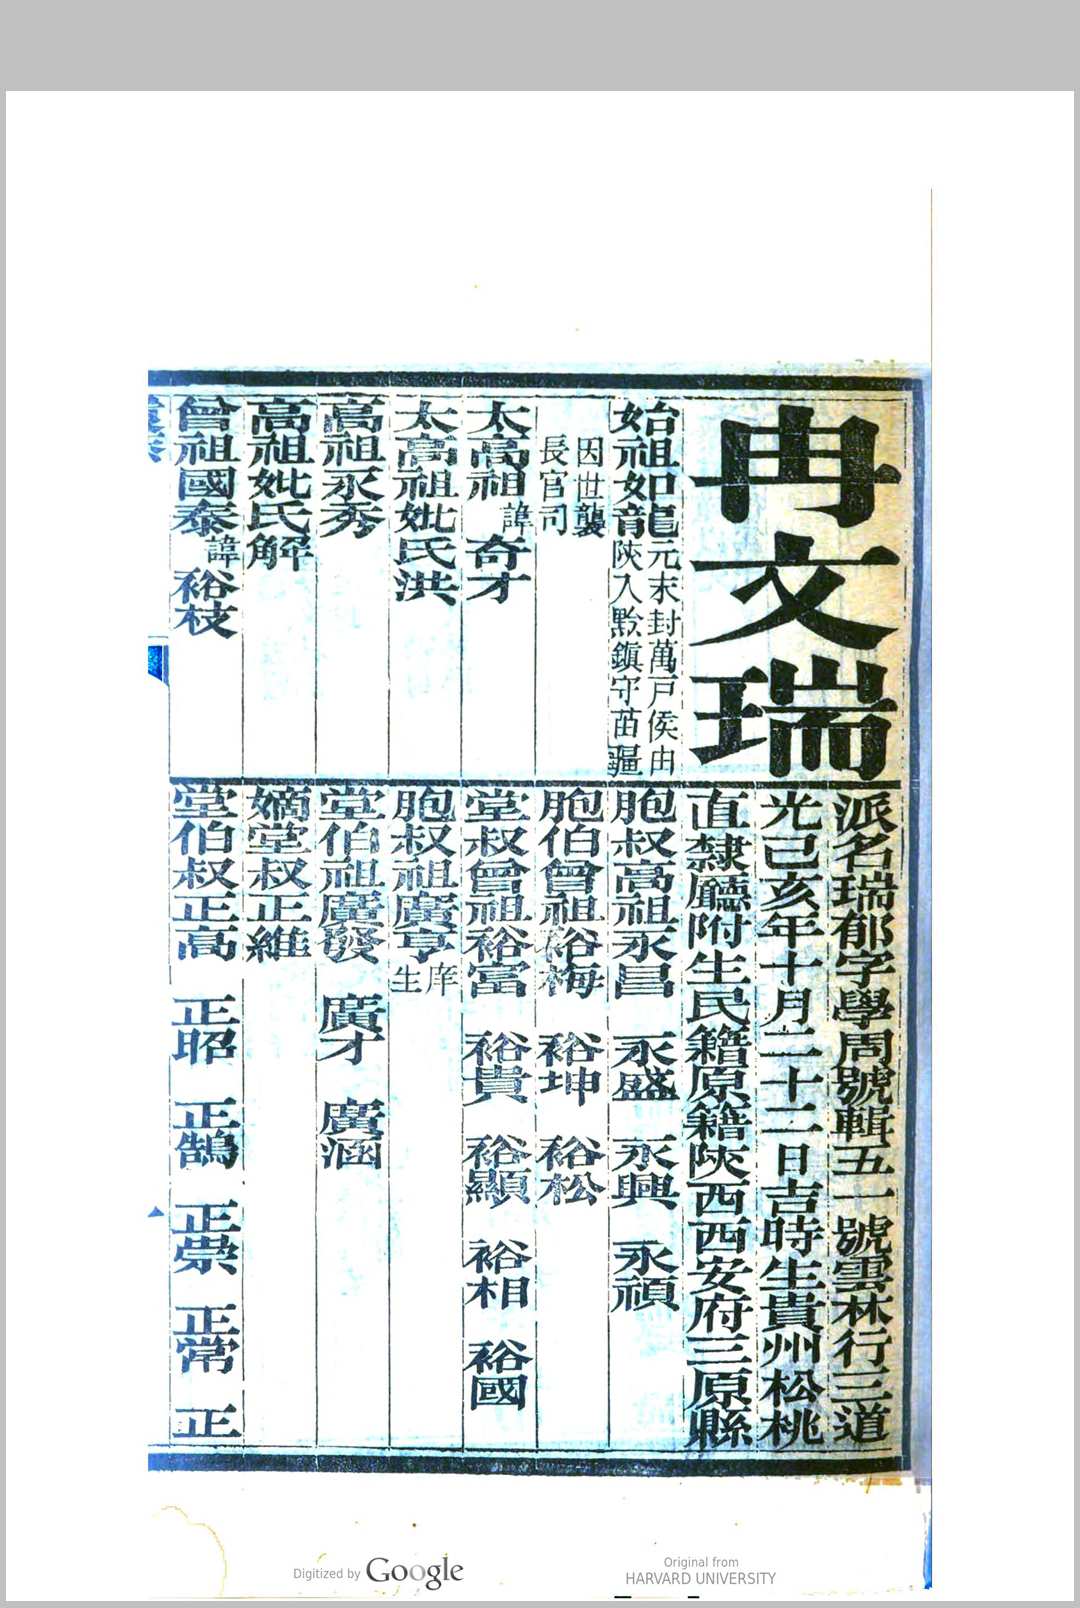 冉文瑞
派名瑞郁字學周號輯五一號雲林行三道
光己亥年十月二十二日吉時生貴州松桃
直隸廳附生民籍原籍陝西西安府三原縣
始祖如龍元末封萬戸侯由
陝入黔鎭守苗疆
因世襲
長官司
太高祖諱奇才
太高祖妣氏洪
高祖永秀
高祖妣氏解
曾祖國泰諱裕枝
胞叔高祖永昌 永盛 永興 永禎
胞伯曾祖裕梅 裕坤 裕松
堂叔曾祖裕富 裕貴 裕顯 裕相 裕國
胞叔祖廣亨庠
生
堂伯祖廣發 廣才 廣涵
嫡堂叔正維
堂伯叔正高 正昭 正鵠 正崇 正常 正
Digitized by Google
Original from
HARVARD UNIVERSITY